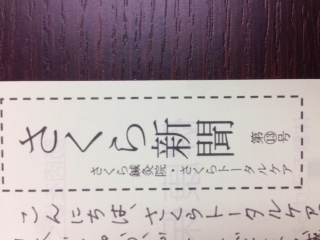 さくら新聞 第⑬号
さくら鍼灸院・さくらトータルケア
こんにちは、さくらトータルケア